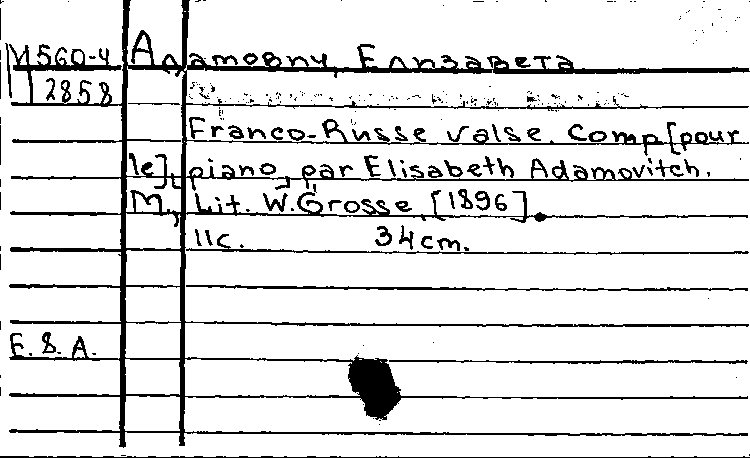 М560-4 Адамович, Елизавета
2858
Franco-Russe valse. Comp[pour
le], piano, par Elisabeth Adamovitch.
М., Lit. W. Grosse, [1896].
11с. 34cm.
E. & A.